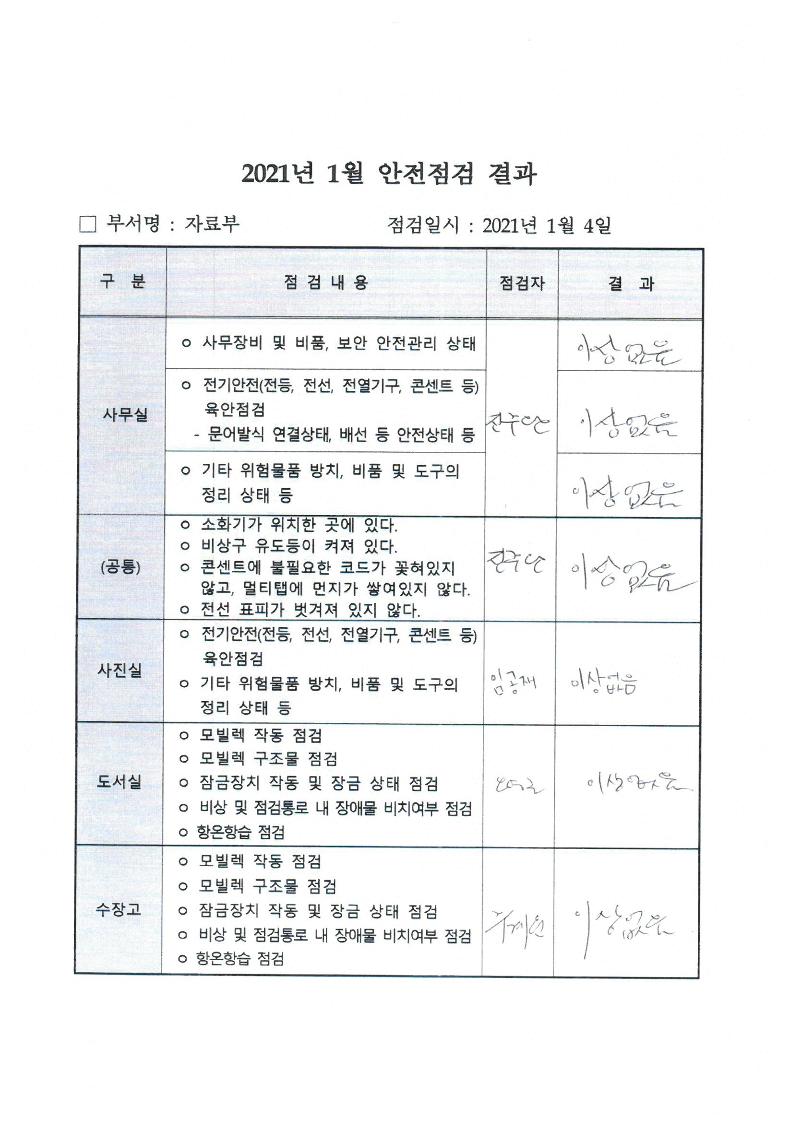 2021년 1월 안전점검 결과
□ 부서명 : 자료부 점검일시 : 2021년 1월 4일
구 분 점 검 내 용 점검자 결 과
사무실
o 사무장비 및 비품, 보안 안전관리 상태
이상없음
o 전기안전(전등, 전선, 전열기구, 콘센트 등)
육안점검
- 문어발식 연결상태, 배선 등 안전상태 등
이상없음
o 기타 위험물품 방치, 비품 및 도구의
정리 상태 등
이상없음
(공통)
o 소화기가 위치한 곳에 있다.
o 비상구 유도등이 켜져 있다.
o 콘센트에 불필요한 코드가 꽃혀있지
않고, 멀티탭에 먼지가 쌓여있지 않다.
o 전선 표피가 벗겨져 있지 않다.
이상없음
사진실
o 전기안전(전등, 전선, 전열기구, 콘센트 등)
육안점검
o 기타 위험물품 방치, 비품 및 도구의
정리 상태 등
임공재
이상없음
도서실
o 모빌렉 작동 점검
o 모빌렉 구조물 점검
o 잠금장치 작동 및 장금 상태 점검
o 비상 및 점검통로 내 장애물 비치여부 점검
o 항온항습 점검
이상없음
수장고
o 모빌렉 작동 점검
o 모빌렉 구조물 점검
o 잠금장치 작동 및 장금 상태 점검
o 비상 및 점검통로 내 장애물 비치여부 점검
o 항온항습 점검
이상없음